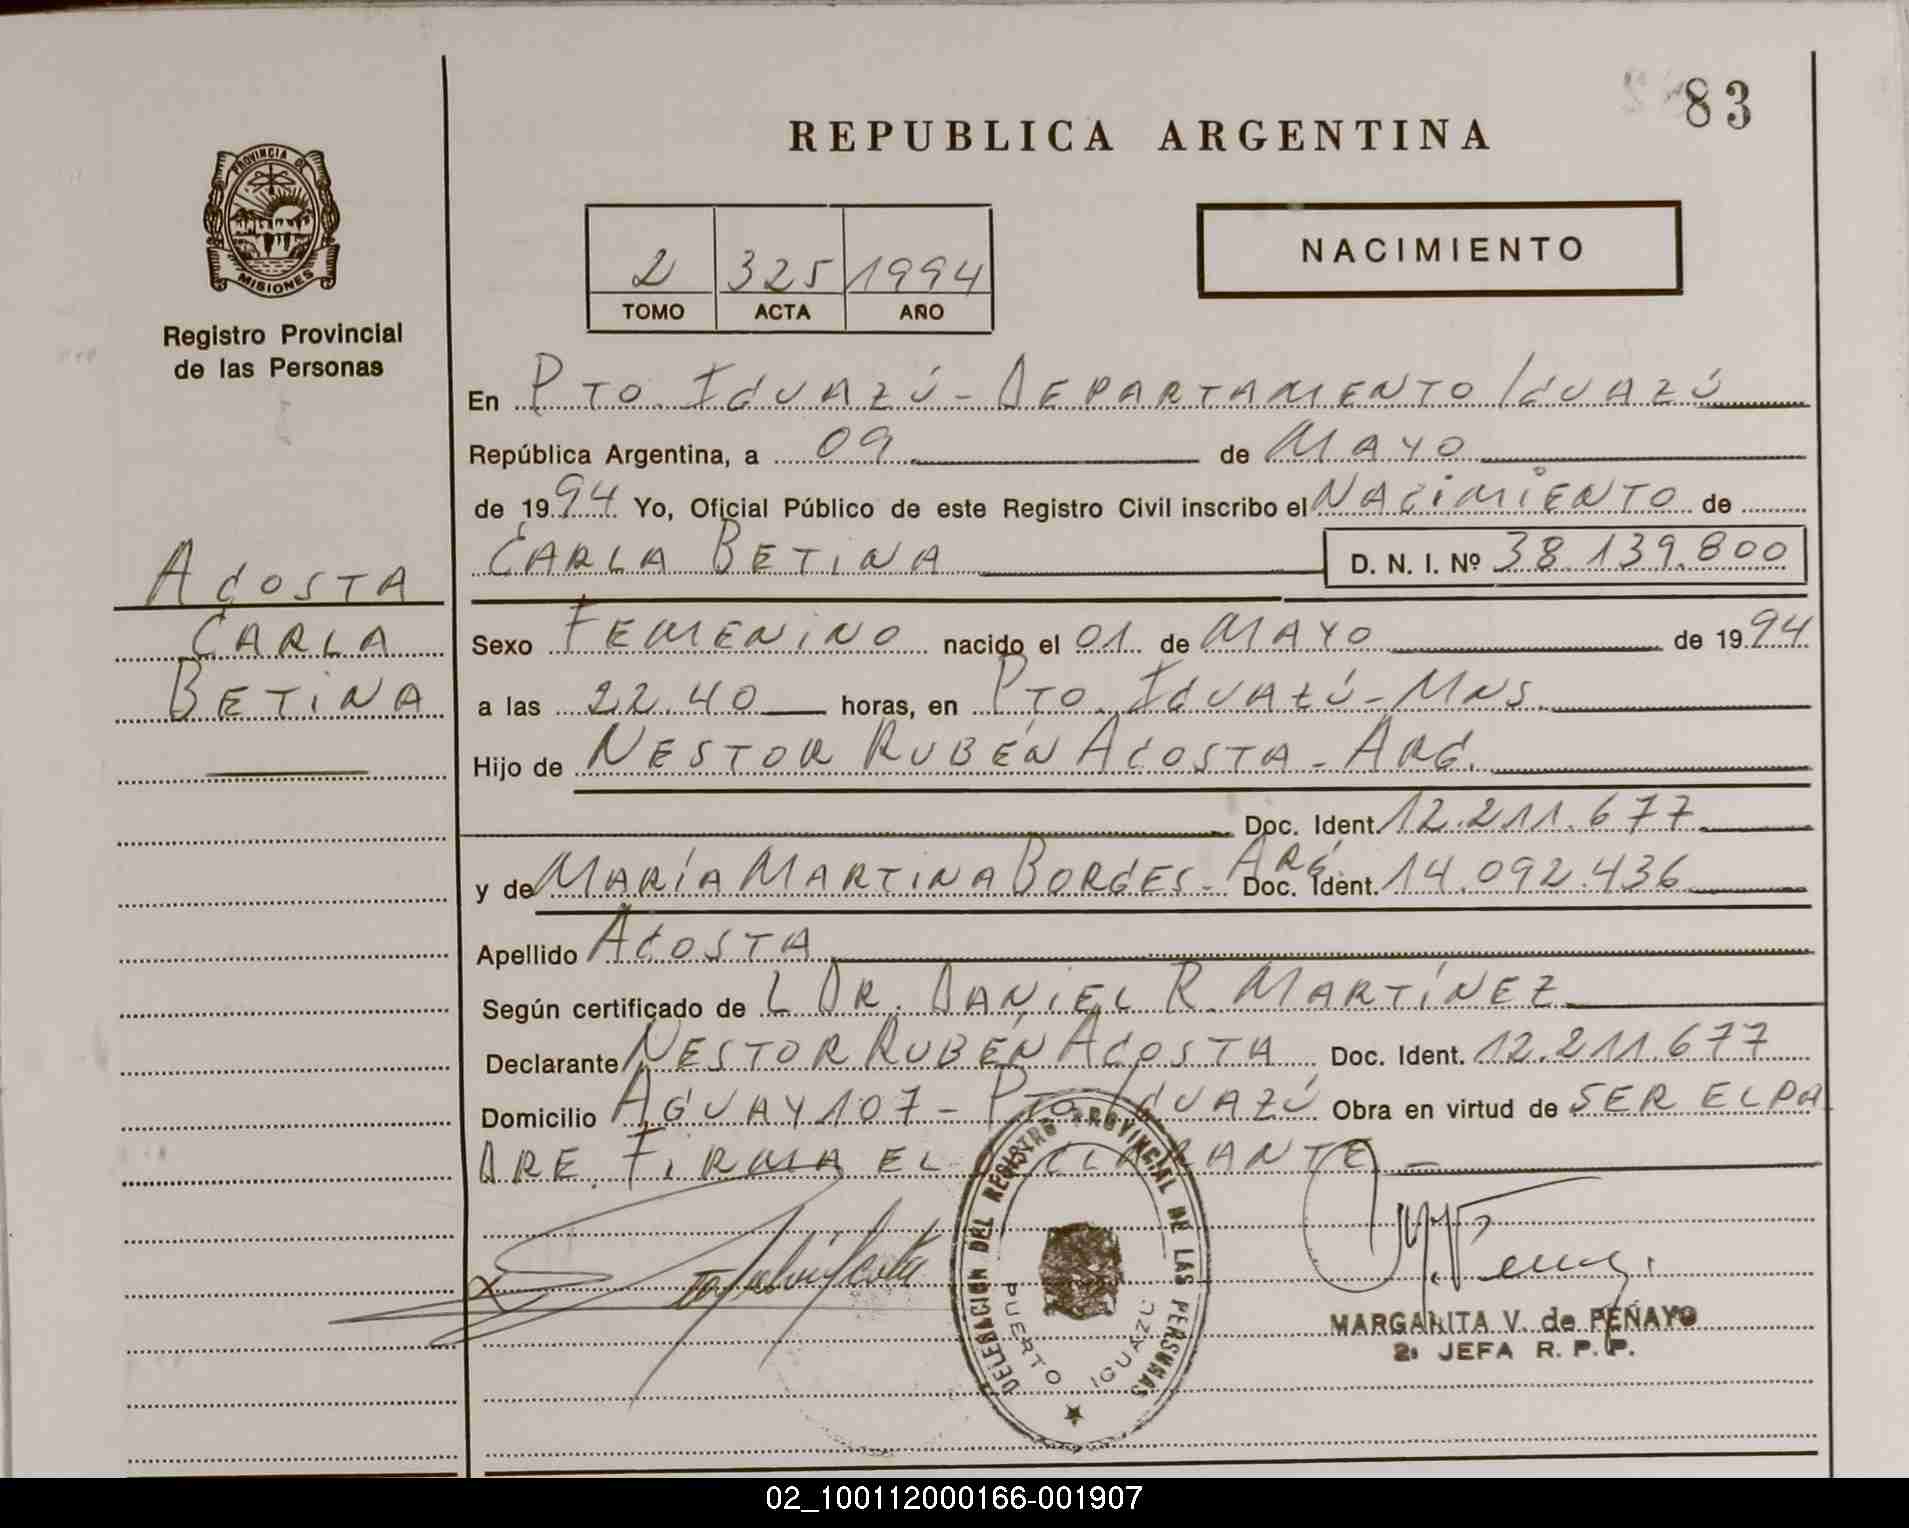 83
REPUBLICA ARGENTINA
PROVINCIA DE
MISIONES
Registro Provincial
de las Personas
2 325 1994
TOMO ACTA AÑO
NACIMIENTO
En PTO. IGUAZÚ - DEPARTAMENTO IGUAZÚ
República Argentina, a 09 de MAYO
de 1994 Yo, Oficial Público de este Registro Civil inscribo el NACIMIENTO de
CARLA BETINA D. N. I. Nº 38.139.800
ACOSTA
CARLA
BETINA
Sexo FEMENINO nacido el 01 de MAYO de 1994
a las 22.40 horas, en PTO. IGUAZÚ - MNS.
Hijo de NESTOR RUBÉN ACOSTA - ARG.
Doc. Ident. 12.211.677
y de MARÍA MARTINA BORGES - ARG. Doc. Ident. 14.092.436
Apellido ACOSTA
Según certificado de L DR. DANIEL R. MARTÍNEZ
Declarante NESTOR RUBÉN ACOSTA Doc. Ident. 12.211.677
Domicilio AGUAY 107 - PTO. IGUAZÚ Obra en virtud de SER EL PA
DRE. FIRMA EL DECLARANTE -
DELEGACION DEL REGISTRO PROVINCIAL DE LAS PERSONAS
PUERTO IGUAZU
MARGARITA V. de PEÑAYO
2ª JEFA R. P. P.
02_100112000166-001907